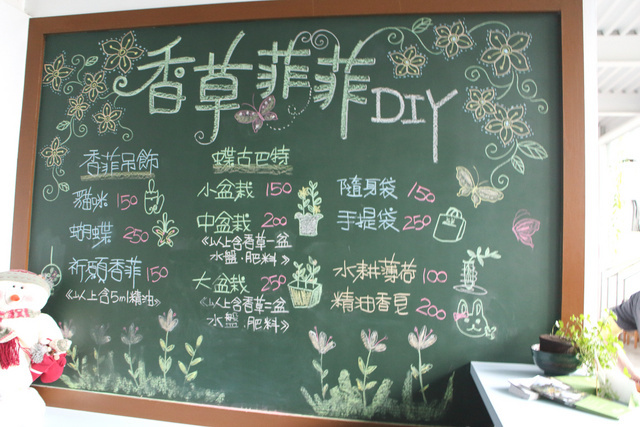 香草菲菲DIY
香菲吊飾
貓咪 150
蝴蝶 250
祈願香菲 150
《以上含5ml精油》
蝶古巴特
小盆栽 150
中盆栽 200
《以上含香草一盆
水盤、肥料》
大盆栽 250
《以上含香草二盆
水盤、肥料》
隨身袋 150
手提袋 250
水耕薄荷 100
精油香皂 200